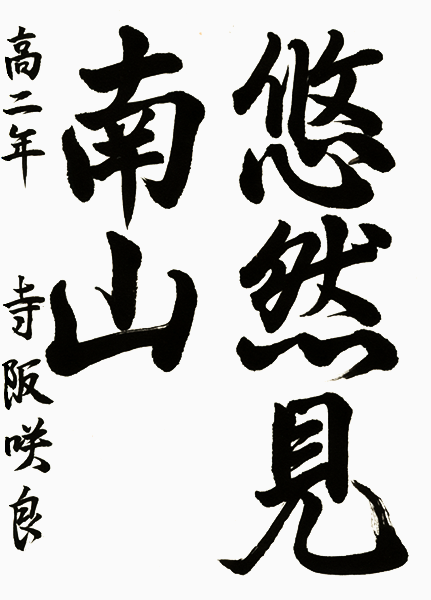 悠然見
南山
高二年 寺阪咲良